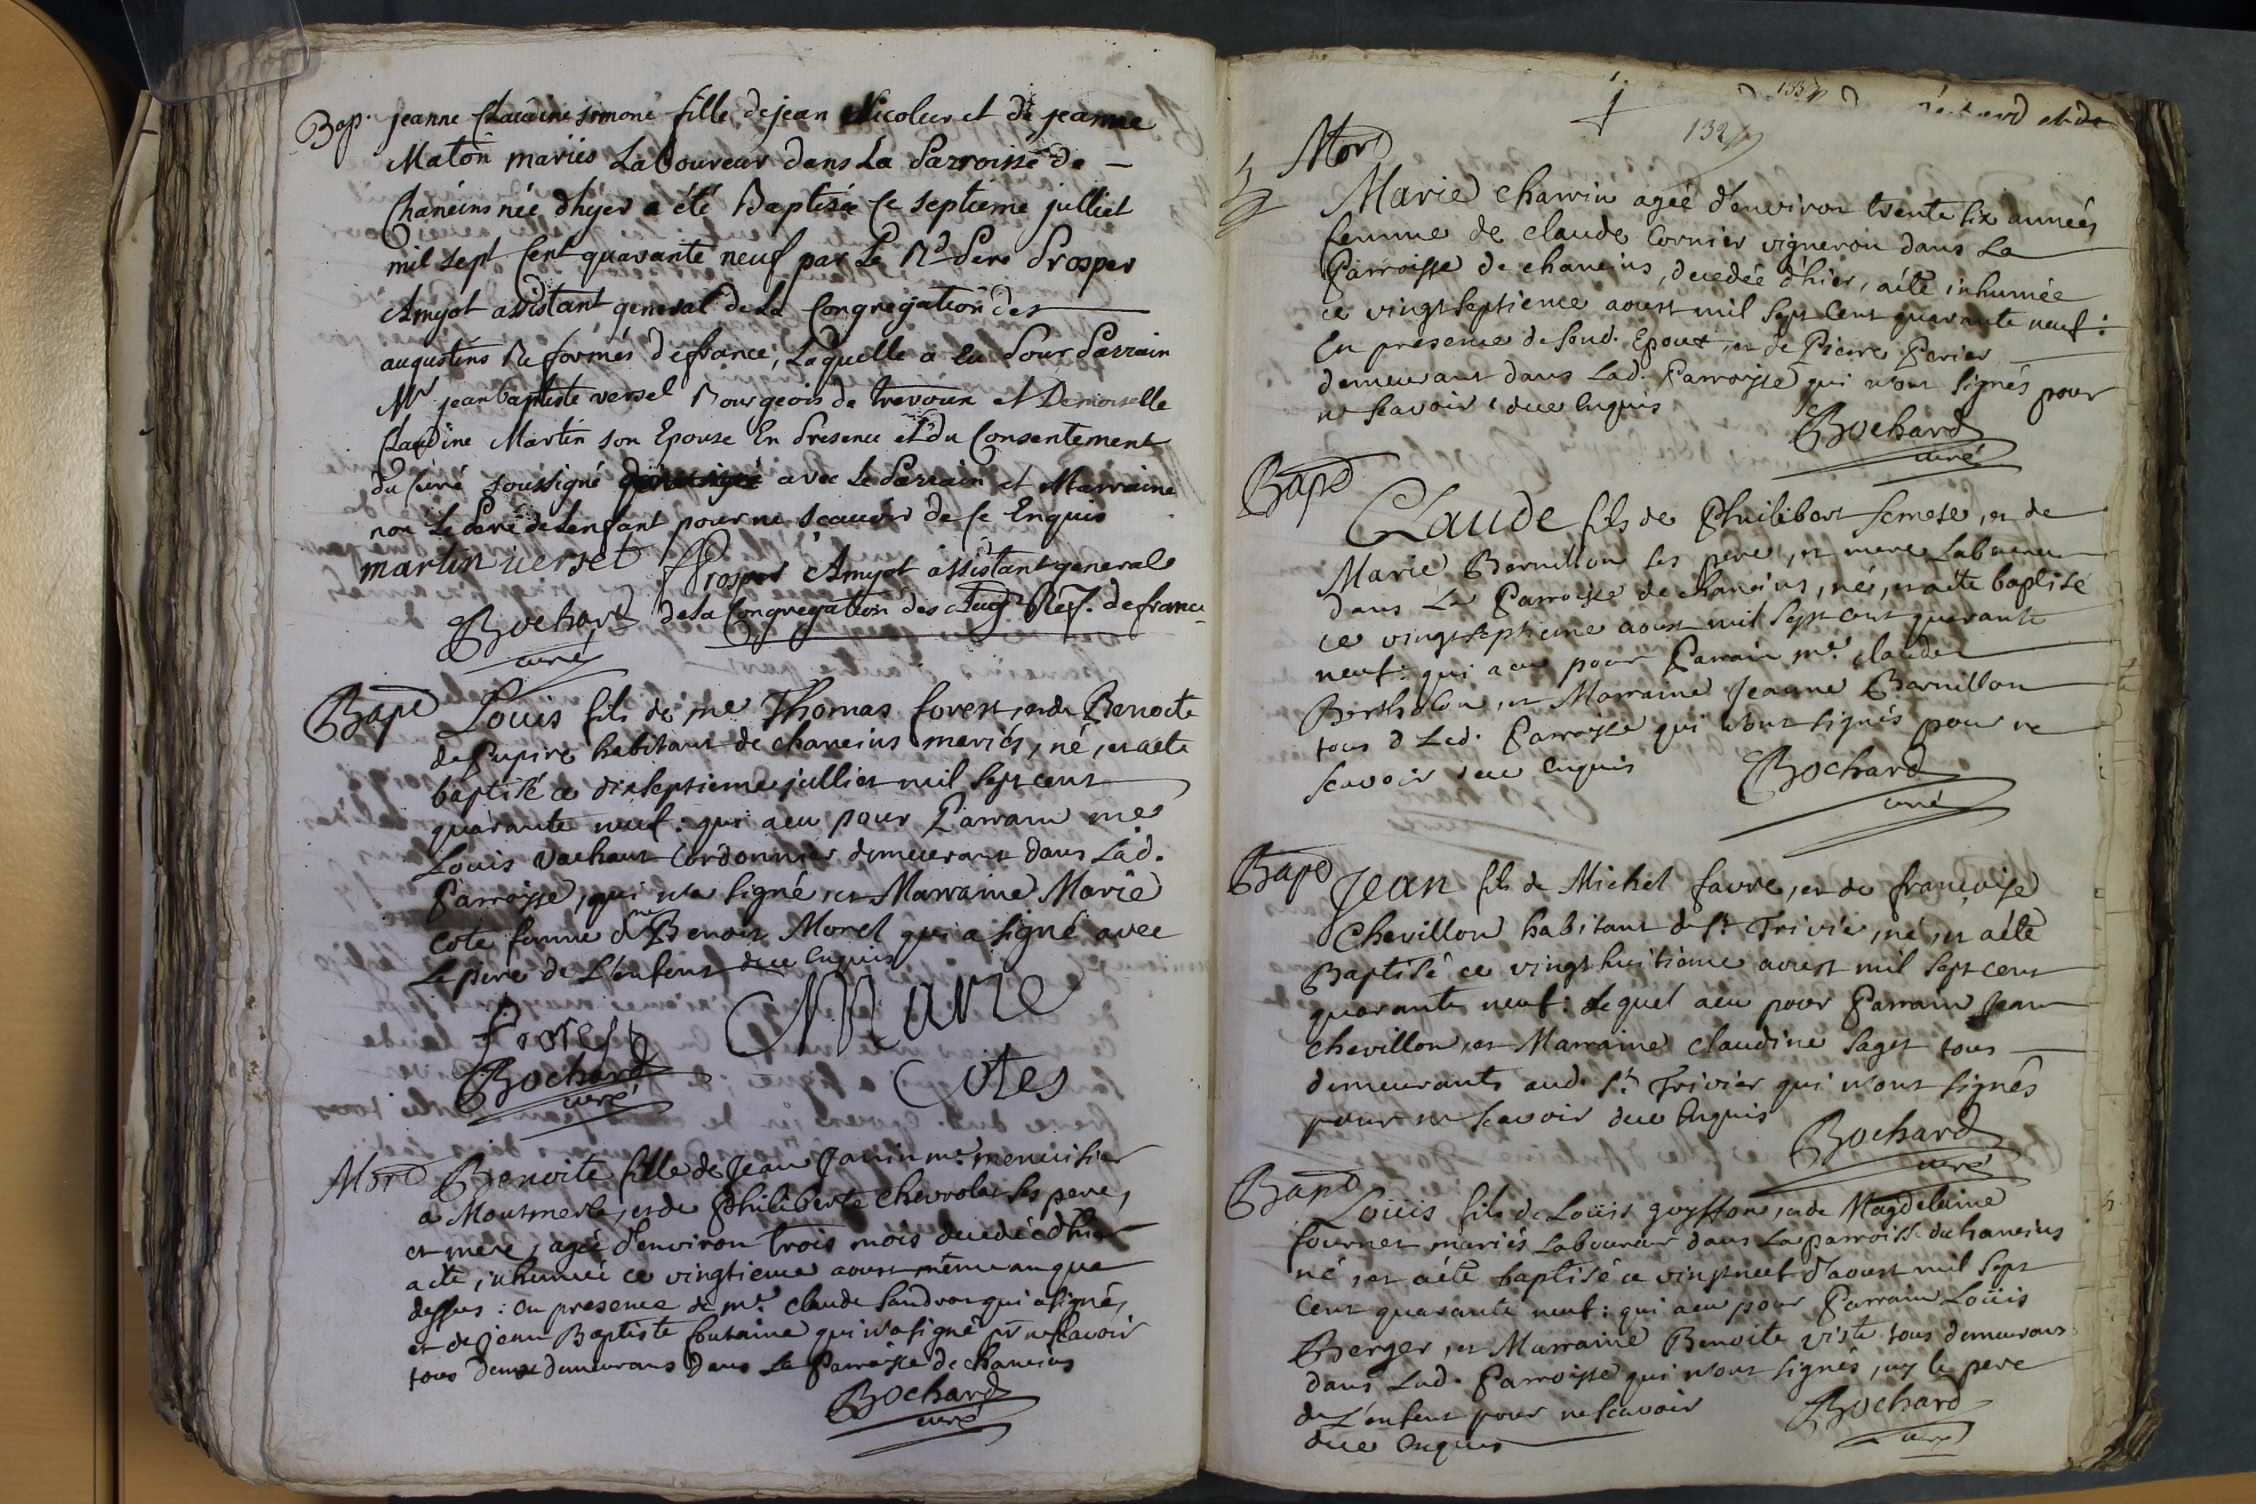 Bap.
jeanne Claudine simone fille de jean Nicoleur et de jeanne
Maton mariés Laboureur dans La Parroisse de
Chaneins née d'hyer a été Baptisée Ce septieme julliet
mil sept Cent quarante neuf par Le Rd Pere Prosper
Amyot assistant general de La Congregation des
augustins Reformés de france, Laquelle a Eu Pour Parrain
Mr jean baptiste versel Bourgeois de trevoux et Demoiselle
Claudine Martin son Epouse En Presence et du Consentement
du Curé soussigné avec Le Parrain et Marraine
non Le Pere de Lenfant pour ne Scauoir de Ce Enquis
martin versel Prosper Amyot assistant general
Bochard de la Congregation des Aug. Ref. de france
curé
Bapt
Louis fils de me Thomas forest, et de Benoite
de Pupire habitant de chaneins mariés, né, et a eté
baptisé ce dixseptieme julliet mil sept cent
quarante neuf: qui a eu pour Parrain me
Louis Vachant Cordonnier demeurant dans Lad.
Parroisse, qui n'a signé, et Marraine Marie
Cote femme d. Benoist Morel qui a signé avec
Le pere de L'enfant de ce enquis
forest Marie
Bochard Cotes
curé
Mort
Benoite fille de Jean Janin me. menuisier
a Montmerle, et de Philiberte Chevrolat ses pere,
et mere, agée d'environ trois mois decedée d'hier
a eté, inhumée ce vingtieme aoust même an que
dessus: en presence de me. Claude Sandron qui a signé,
et de Jean Baptiste fontaine qui n'a signé pr ne scavoir
tous deux demeurans dans La Parroisse de chaneins
Bochard
curé
133
132
Mort
Marie charvin agée d'environ trente six années
femme de claude Cornier vigneron dans La
Parroisse de chaneins, decedée d'hier, a eté inhumée
ce vingt septieme aoust mil sept Cent quarante neuf:
En presence de sond. Epoux, et de Pierre Perier
demeurant dans Lad. Parroisse qui n'ont signés pour
ne scavoir, de ce enquis
Bochard
curé
Bapt
Claude fils de Philibert Semese, et de
Marie Bernillon ses pere, et mere Laboureur
dans La Parroisse de chaneins, né, et a eté baptisé
ce vingt septieme aoust mil sept cent quarante
neuf: qui a eu pour Parrain me. claude
Bertholon, et Marraine Jeanne Barnillon
tous d Lad. Parroisse qui n'ont signés pour ne
scavoir de ce enquis
Bochard
curé
Bapt
Jean fils de Michel favre, et de françoise
Chevillon habitant de St Trivié, né, et a été
Baptisé ce vingt huitiême aoust mil sept cent
quarante neuf: Lequel a eu pour Parrain Jean
chevillon, et Marraine claudine Saget tous
demeurants aud. St. Trivier qui n'ont signés
pour ne scavoir de ce enquis
Bochard
curé
Bapt
Loüis fils de Loüis guyffon, et de Magdelaine
fournet mariés Laboureur dans La parroisse de chaneins
né, et a été baptisé ce vingt neuf d'aoust mil sept
Cent quarante neuf: qui a eu pour Parrain Loüis
Berger, et Marraine Benoite viste tous demeurans
dans Lad. Parroisse qui n'ont signés, ny le pere
de L'enfant pour ne scavoir
de ce enquis
Bochard
curé